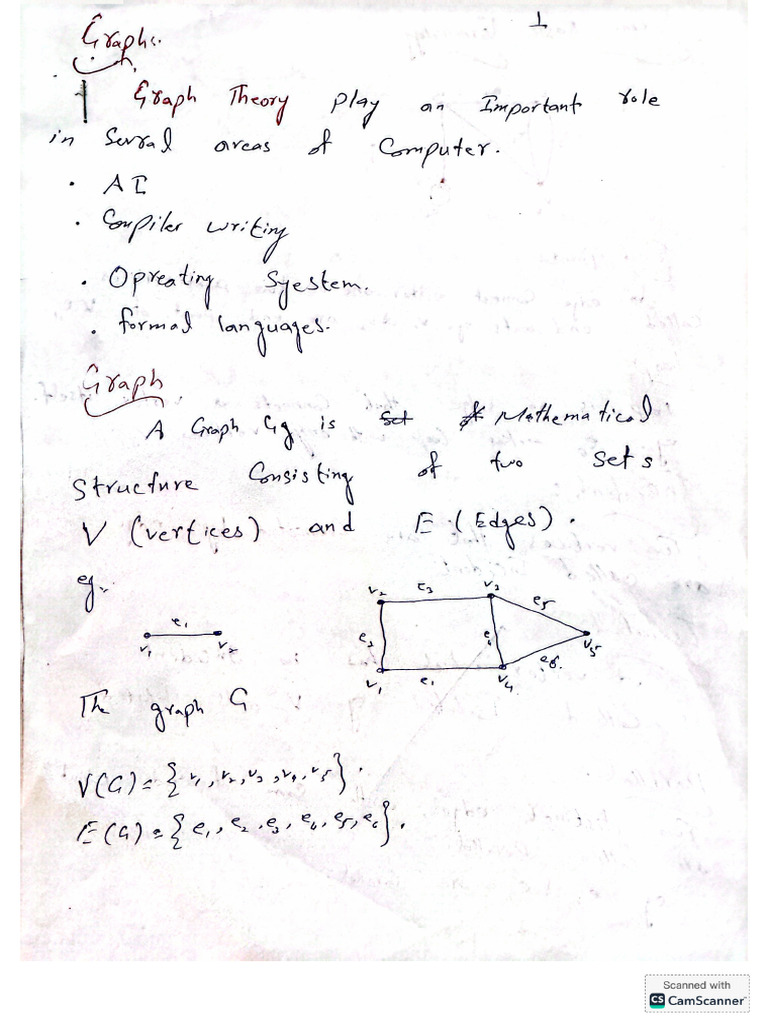 1
Graphs.
Graph Theory play an Important role
in Sevral areas of Computer.
· AI
· Compiler writing
· Opreating Syestem.
· formal languages.
Graph
A Graph G is Set of Mathematical
Structure Consisting of two sets
V (vertices) and E (Edges).
eg.
v2 e3 v3
e5
e1
e2 e4 v5
v1 v2
e6.
v1 e1 v4
The graph G
V(G) = {v1, v2, v3, v4, v5}.
E(G) = {e1, e2, e3, e4, e5, e6}.
Scanned with
CS CamScanner